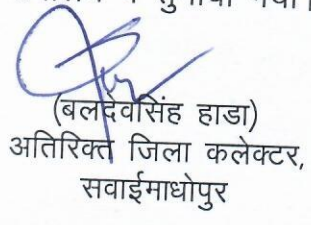 सुनाया गया।
(बलदेवसिंह हाडा)
अतिरिक्त जिला कलेक्टर,
सवाईमाधोपुर